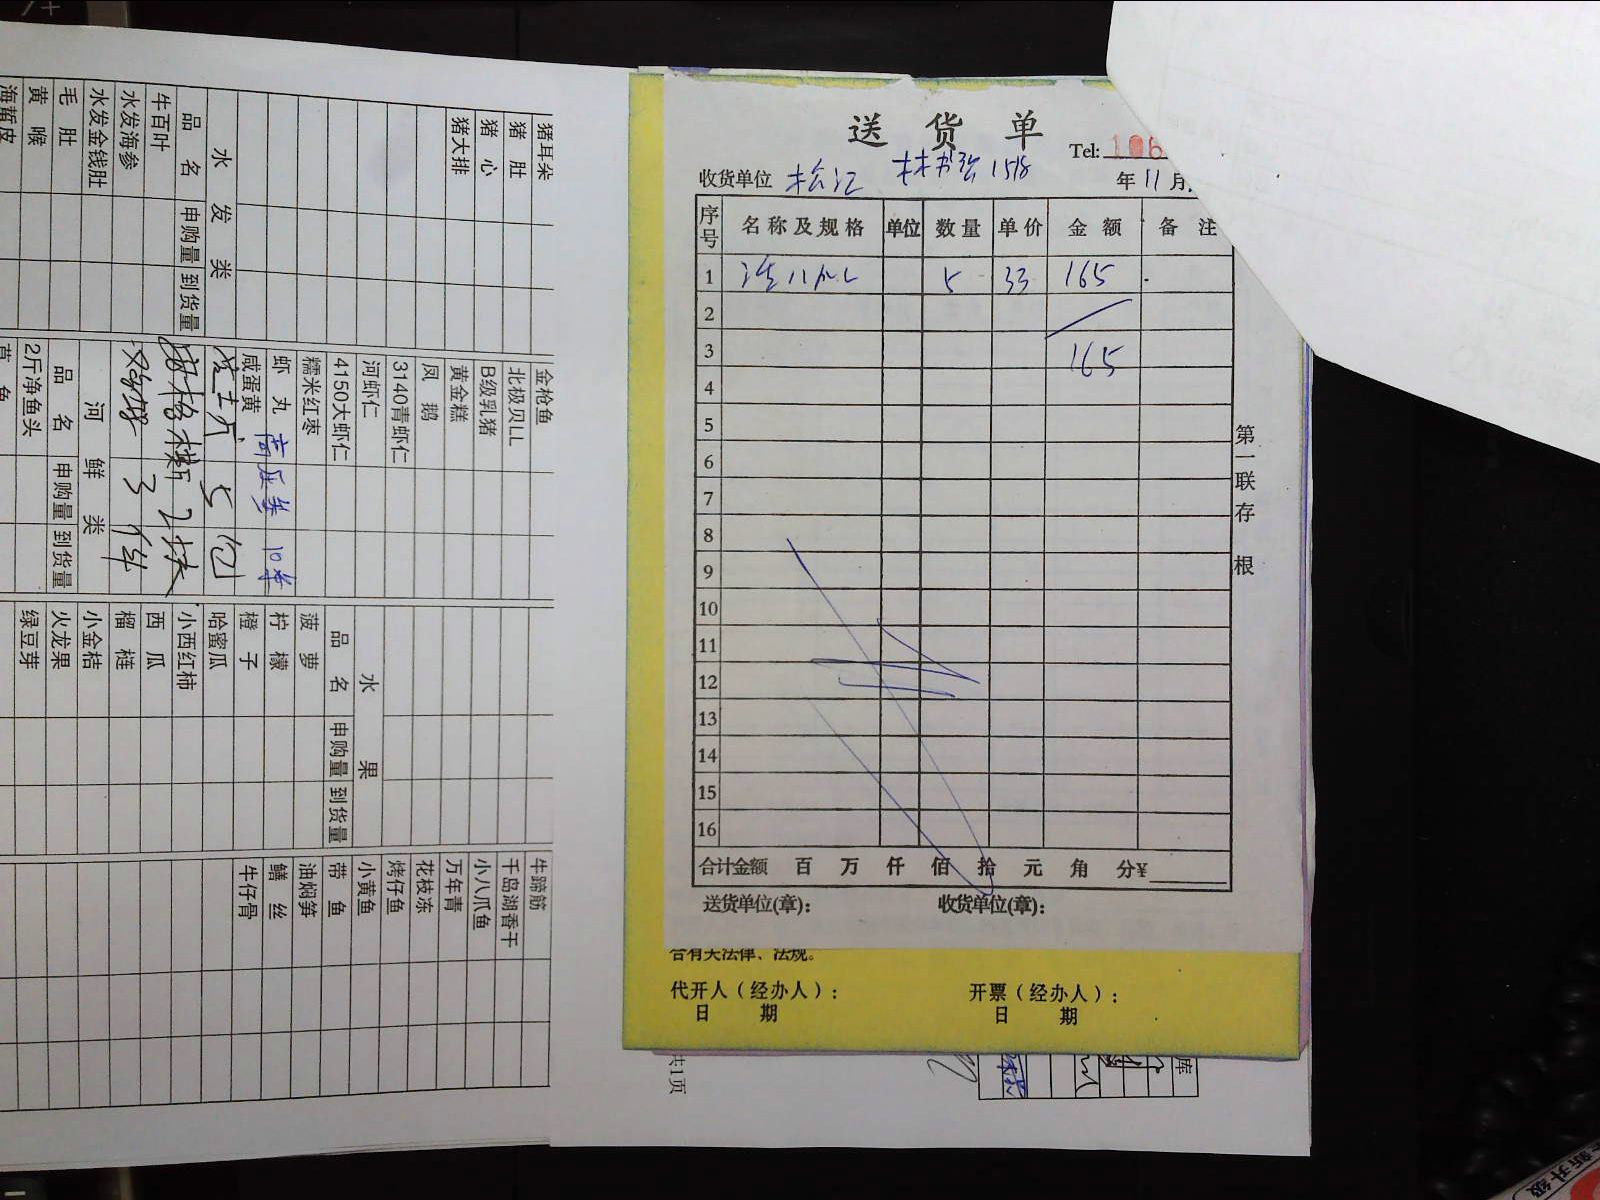 送货单
Tel: 108
收货单位 松江 林书弟 1518
年 11 月
序号 名称及规格 单位 数量 单价 金额 备注
1 5 33 165
2
3 165
4
5
6
7
8
9
10
11
12
13
14
15
16
合计金额 百 万 仟 佰 拾 元 角 分¥
送货单位(章): 收货单位(章):
第一联存根
合有关法律、法规。
代开人(经办人): 开票(经办人):
日 期 日 期
共1页
库
猪耳朵
猪肚
猪心
猪大排
水发类
品名 申购量 到货量
牛百叶
水发海参
水发金钱肚
毛肚
黄喉
海蜇皮
金枪鱼
北极贝LL
B级乳猪
黄金糕
凤鹅
3140青虾仁
河虾仁
4150大虾仁
糯米红枣
虾丸
咸蛋黄
5 包
3 件
河鲜类
品名 申购量 到货量
2斤净鱼头
水果
品名 申购量 到货量
菠萝
柠檬
橙子
哈蜜瓜
小西红柿
西瓜
榴梿
小金桔
火龙果
绿豆芽
牛蹄筋
千岛湖香干
小八爪鱼
万年青
花枝冻
烤仔鱼
小黄鱼
带鱼
油焖笋
鳝丝
牛仔骨